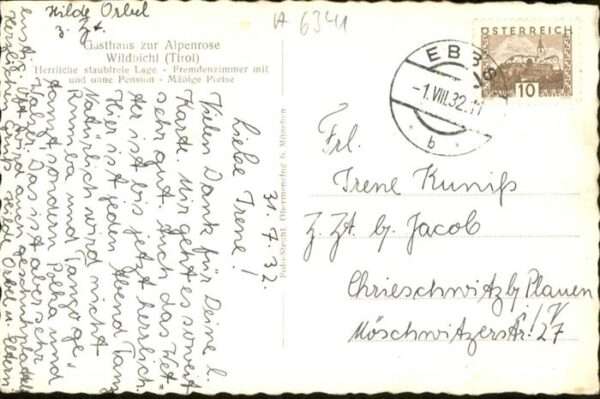 Hilde Orbel
z. Zt.
A 6341
Gasthaus zur Alpenrose
Wildbichl (Tirol)
Herrliche staubfreie Lage - Fremdenzimmer mit
und ohne Pension - Mäßige Preise
31. 7. 32.
Liebe Irene!
Vielen Dank für Deine l.
Karte. Mir geht es soweit
sehr gut. Auch das Wet-
ter ist bis jetzt herrlich.
Hier ist jeden Abend Tanz
Natürlich wird nicht
Rumba und Tango ge-
tanzt sondern Polka und
Walzer. Das ist aber sehr
lustig. Oft wird auch geschuhplattelt
Herzlichen Gruß Hilde Orbel u. Eltern
ÖSTERREICH
10
EBBS
-1.VIII.32.
b
Frl.
Irene Kuniß
z. Zt. b. Jacob
Chrieschwitz b/Plauen
i/V
Möschwitzerstr. 27